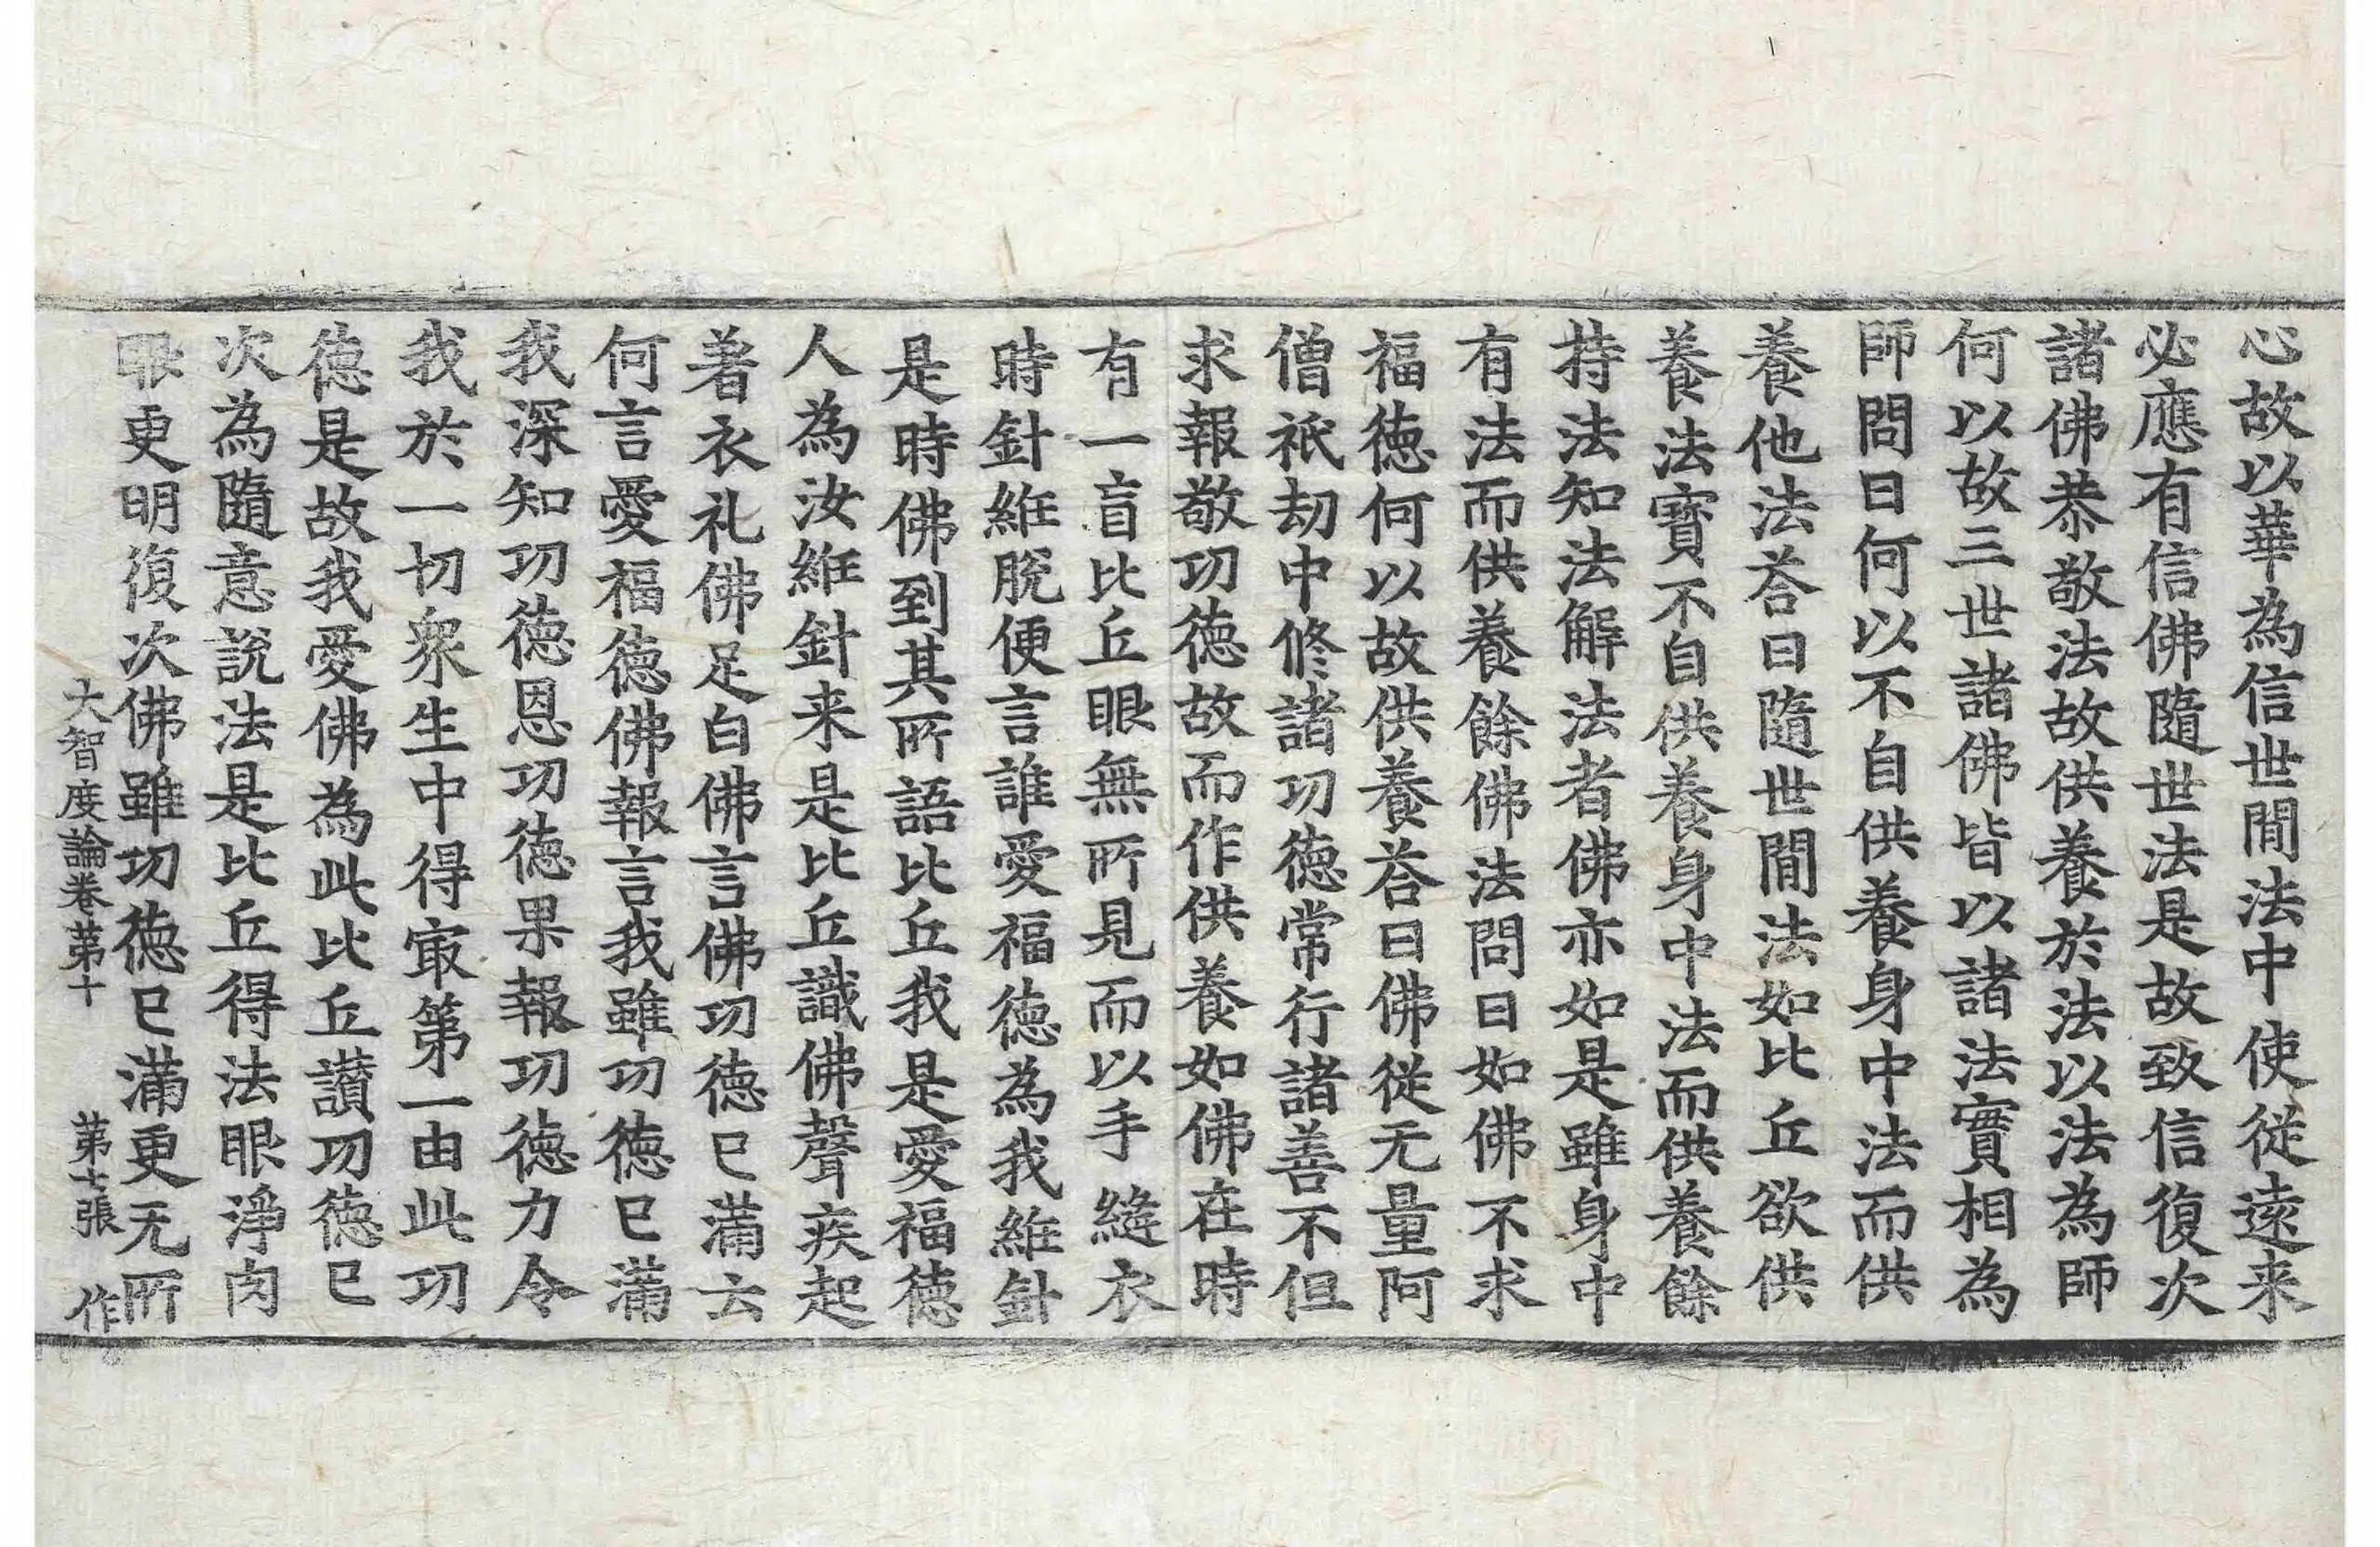 心故以華為信世閒法中使從遠来
必應有信佛隨世法是故致信復次
諸佛恭敬法故供養於法以法為師
何以故三世諸佛皆以諸法實相為
師問曰何以不自供養身中法而供
養他法荅曰隨世閒法如比丘欲供
養法寶不自供養身中法而供養餘
持法知法解法者佛亦如是雖身中
有法而供養餘佛法問曰如佛不求
福德何以故供養荅曰佛從无量阿
僧祇劫中修諸功德常行諸善不但
求報敬功德故而作供養如佛在時
有一盲比丘眼無所見而以手縫衣
時針維脫便言誰愛福德為我維針
是時佛到其所語比丘我是愛福德
人為汝維針来是比丘識佛聲疾起
著衣礼佛足白佛言佛功德已滿云
何言愛福德佛報言我雖功德已滿
我深知功德恩功德果報功德力令
我於一切衆生中得㝡第一由此功
德是故我愛佛為此比丘讃功德已
次為隨意說法是比丘得法眼淨肉
眼更明復次佛雖功德已滿更无所
大智度論卷第十 第七張 作